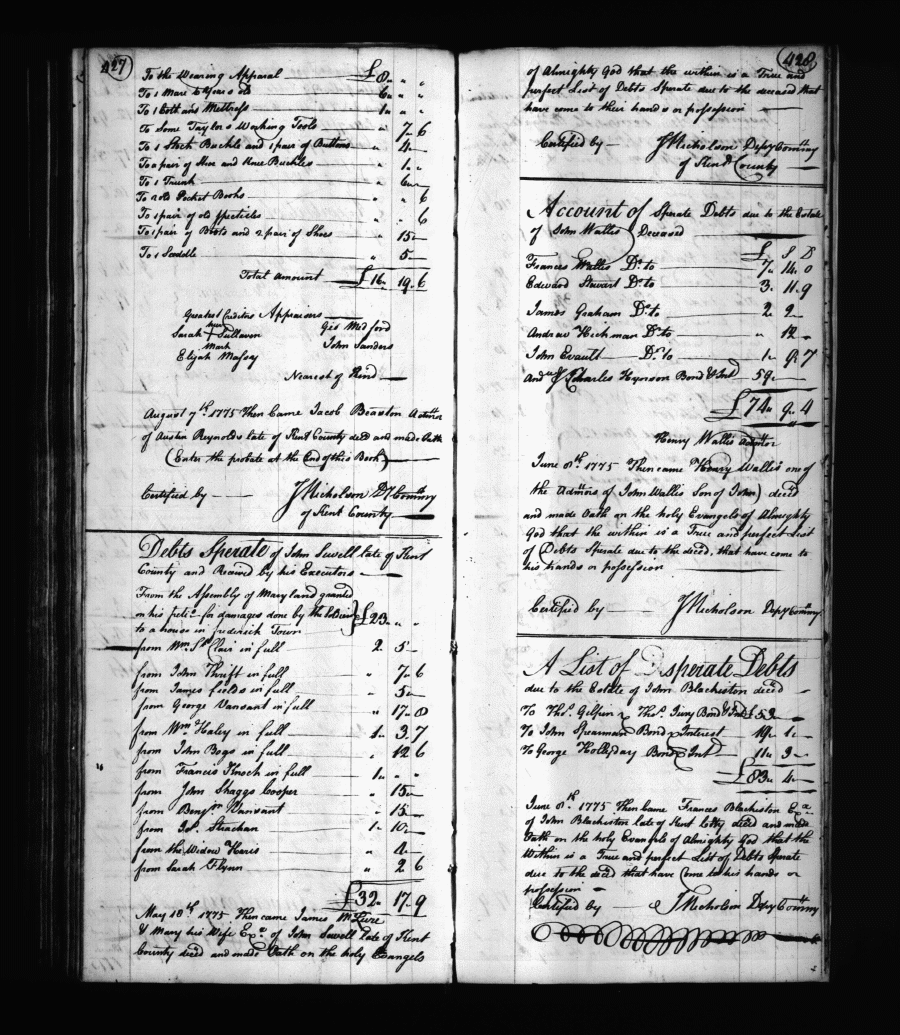 427
To the Wearing Apparal £8 " "
To 1 Mare 10 Years old 6 " "
To 1 Cott and Mettrass 1 " "
To Some Taylors Working Tools " 7 - 6
To 1 Stock Buckle and 1 pair of Buttons " 4 -
To a pair of Shoe and Knee Buckles " 1 -
To 1 Trunk " 6 -
To 2 old Pocket Books " " 6
To 1 pair of old Specticles " " 6
To 1 pair of Boots and 2 pair of Shoes " 15 -
To 1 Saddle " 5 -
Total Amount £16 " 19 " 6
Greatest Creditors Appraisers
her
Sarah + Sullaven Geo Medford
Mark John Sanders
Elijah Massy
Nearest of Kind
August 7th 1775 Then Came Jacob Beaston Admtor
of Austin Reynolds late of Kent County decd and made Oath
(Enter the probate at the End of this Book)
Certified by J Nicholson Dy Commy
of Kent County
Debts Sperate of John Sewell late of Kent
County and Received by his Executors
From the Assembly of Maryland granted
on his petin for damages done by the Soldiers } £23 " "
to a house in frederick Town
from Wm St Clair in full 2 5 -
from John Thrift in full " 7 - 6
from James fields in full " 5 -
from George Vansant in full " 17 - 8
from Wm Haley in full 1 " 3 . 7
from John Bogs in full " 12 6
from Francis Knock in full 1 " "
from John Skaggs Cooper " 15 -
from Benjn Vansant " 15 -
from Strachan 1 " 10 -
from the Widow Haris " 4 -
from Sarah Flynn " 2 6
£32 " 17 - 9
May 18th 1775 Then came James McLure
& Mary his Wife Exx of John Sewell late of Kent
County decd and made Oath on the holy Evangels
428
of Almighty God that the within is a True and
perfect List of Debts Sperate due to the deceased that
have come to their hands or possession
Certified by J Nicholson Depy Commy
of Kent County
Account of Sperate Debts due to the Estate
of John Wallis } Deceased
£ S D
Frances Wallis Dr to 7 " 14 . 0
Edward Stewart Dr to 3 . 11 . 9
James Graham Dr to 2 2 -
Andrew Hickman Dr to " 12 -
John Evautt Dr to 1 " 7
And Charles Hynson Bond & Int 59 "
£74 " 9 " 4
Henry Wallis Admtor
June 8th 1775 Then came Henry Wallis one of
the Admors of John Wallis (Son of John) decd
and made Oath on the holy Evangels of Almighty
God that the within is a True and perfect List
of Debts Sperate due to the decd, that have come to
his hands or possession
Certified by J Nicholson Depy Commy
A List of Desperate Debts
due to the Estate of John Blackiston decd
To Thos Gilpin & Thos Juny Bond & Int £53 "
To John Spearman Bond & Interest 19 " 1 -
To George Hollyday Bond & Int 11 " 3 -
£83 " 4 -
June 8th 1775 Then Came Frances Blackiston Exx
of John Blackiston late of Kent Coty decd and made
Oath on the holy Evangels of Almighty God that the
Within is a True and perfect List of Debts Sperate
due to the decd that have Come to his hands or
possession
Certified by J Nicholson Depy Commy